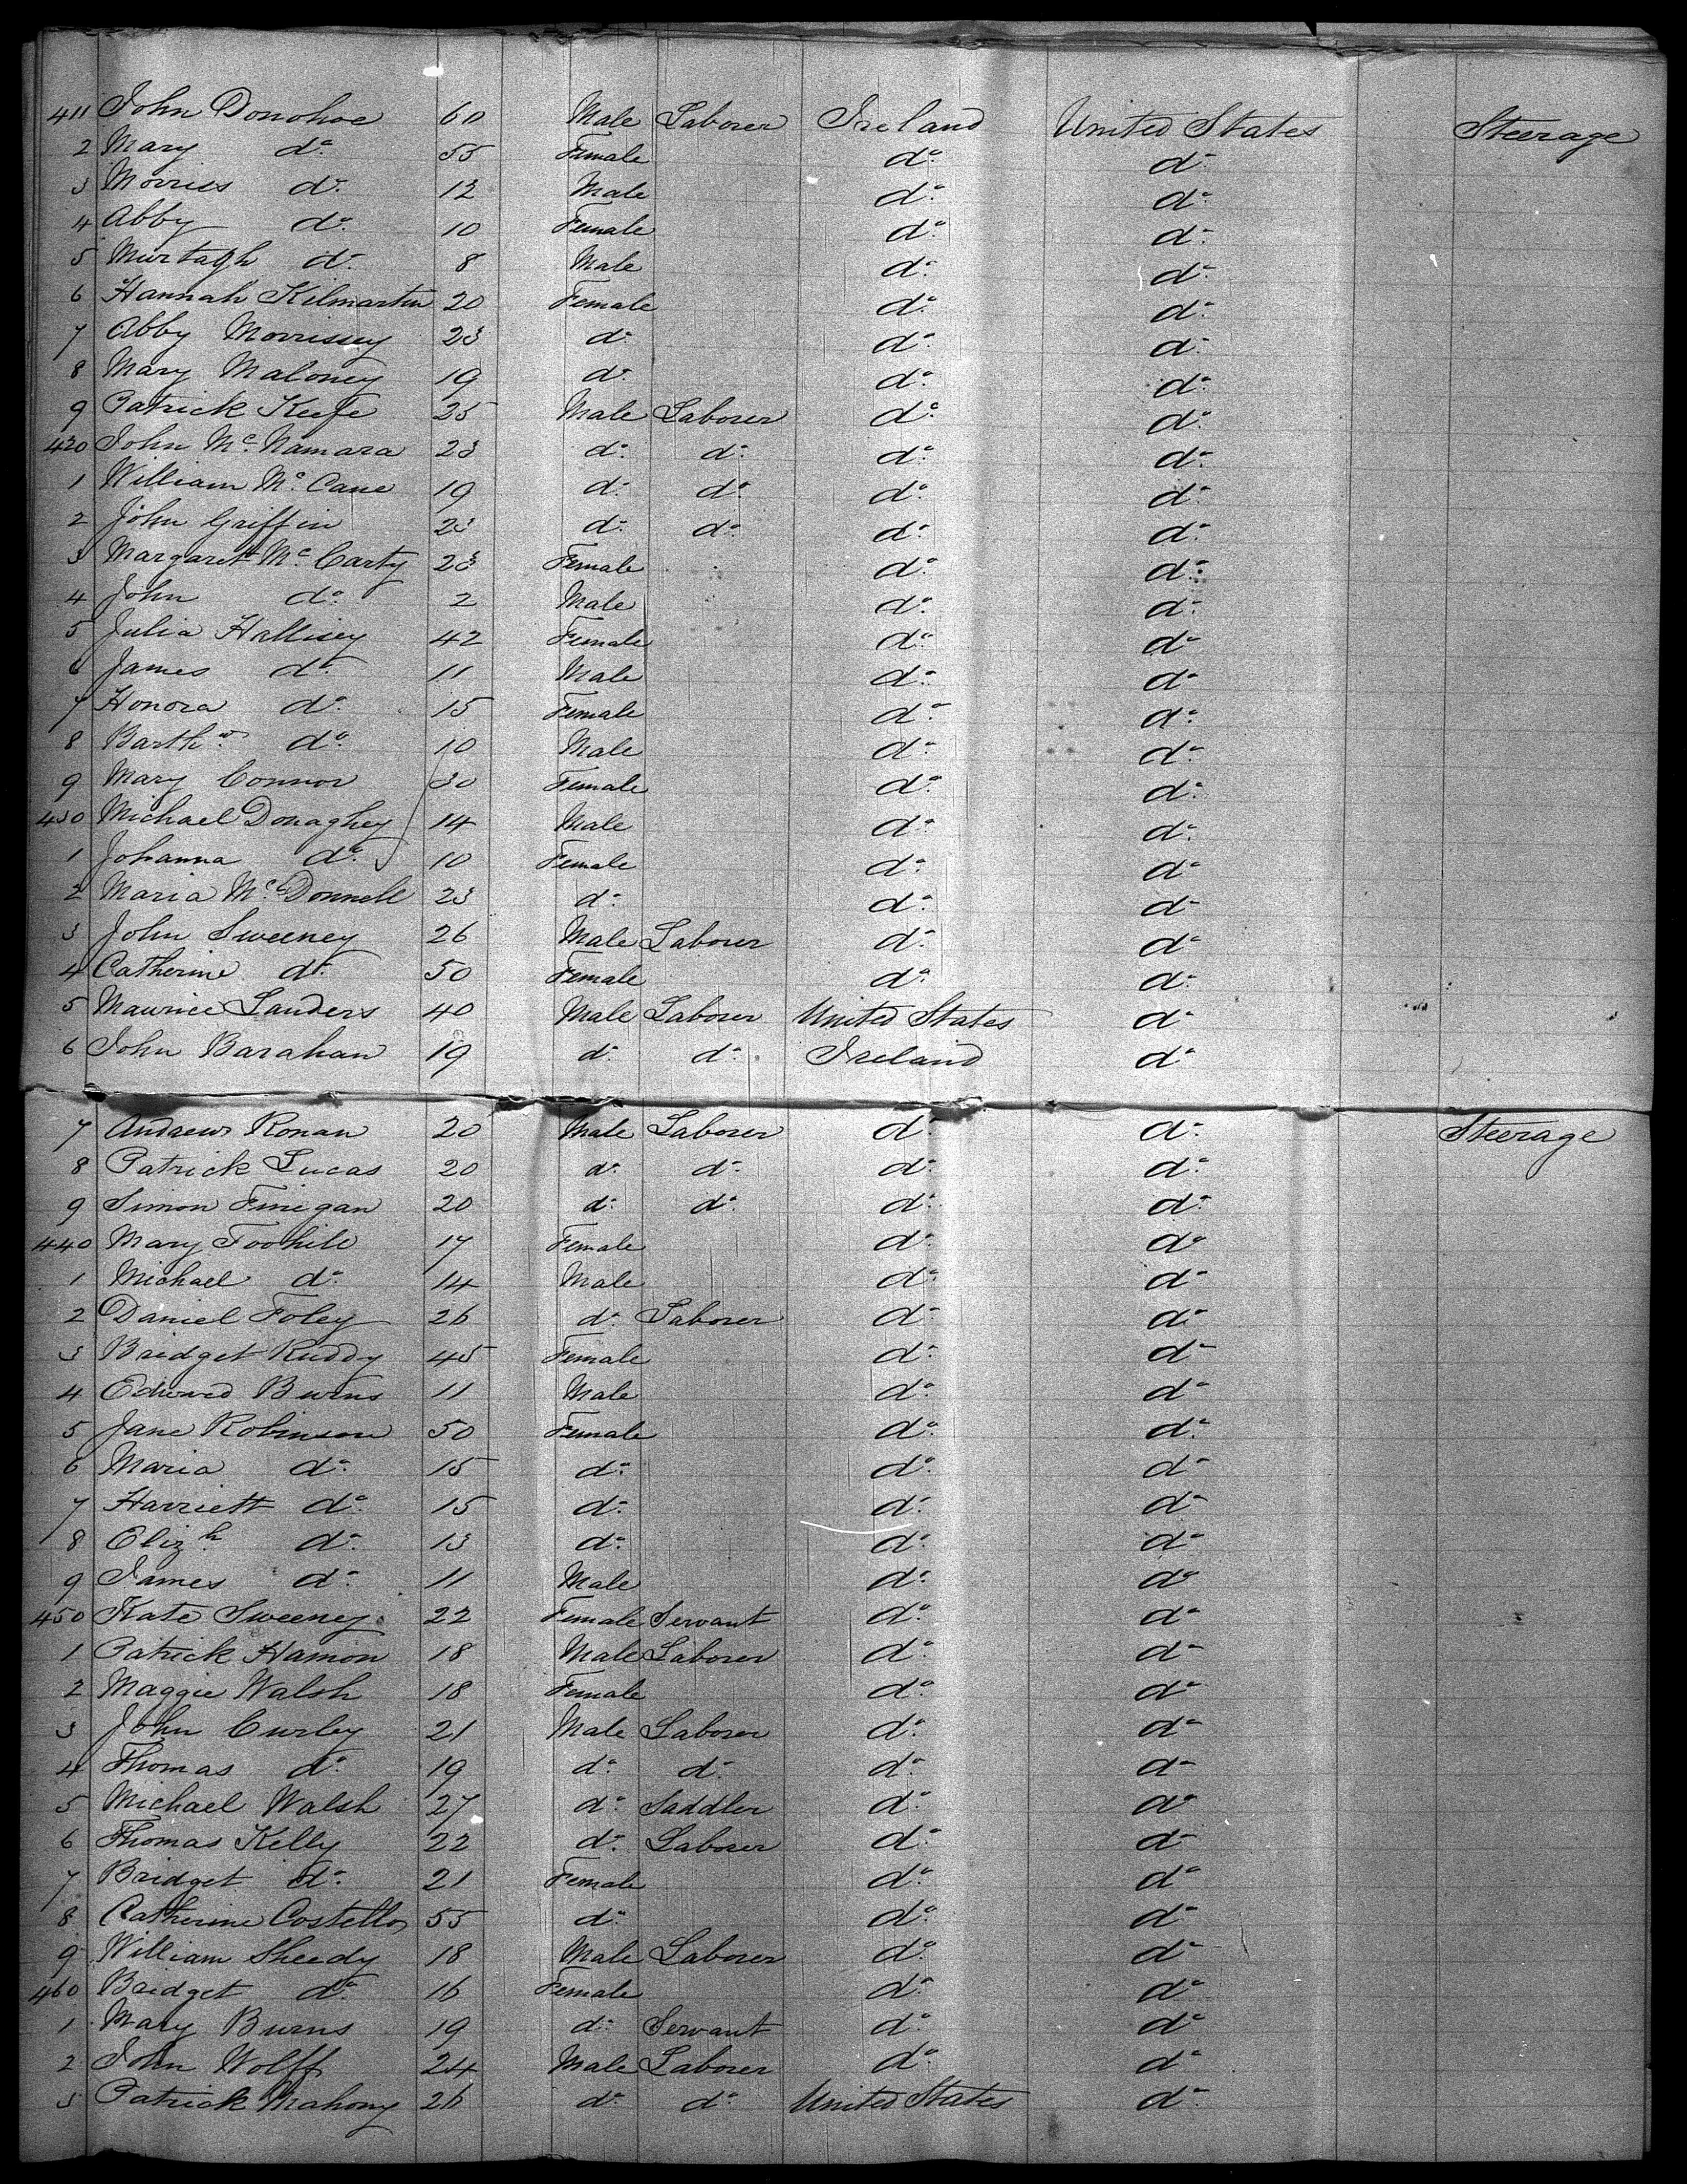 411 John Donohoe 60 Male Laborer Ireland United States Steerage
2 Mary do. 55 Female do. do.
3 Morriss do. 12 Male do. do.
4 Abby do. 10 Female do. do.
5 Murtagh do. 8 Male do. do.
6 Hannah Kilmartin 20 Female do. do.
7 Abby Morrissey 23 do. do. do.
8 Mary Maloney 19 do. do. do.
9 Patrick Keefe 25 Male Laborer do. do.
420 John McNamara 23 do. do. do. do.
1 William McCane 19 do. do. do. do.
2 John Griffin 23 do. do. do. do.
3 Margaret McCarty 23 Female do. do.
4 John do. 2 Male do. do.
5 Julia Hallisey 42 Female do. do.
6 James do. 11 Male do. do.
7 Honora do. 15 Female do. do.
8 Barthw. do. 10 Male do. do.
9 Mary Connor 30 Female do. do.
430 Michael Donaghey 14 Male do. do.
1 Johanna do. 10 Female do. do.
2 Maria McDonnell 23 do. do. do.
3 John Sweeney 26 Male Laborer do. do.
4 Catherine do. 50 Female do. do.
5 Maurice Landers 40 Male Laborer United States do.
6 John Barahan 19 do. do. Ireland do.
7 Andrew Ronan 20 Male Laborer do. do. Steerage
8 Patrick Lucas 20 do. do. do. do.
9 Simon Finigan 20 do. do. do. do.
440 Mary Toohill 17 Female do. do.
1 Michael do. 14 Male do. do.
2 Daniel Foley 26 do. Laborer do. do.
3 Bridget Ruddy 45 Female do. do.
4 Edward Burns 11 Male do. do.
5 Jane Robinson 50 Female do. do.
6 Maria do. 15 do. do. do.
7 Harriett do. 15 do. do. do.
8 Elizh. do. 13 do. do. do.
9 James do. 11 Male do. do.
450 Kate Sweeney 22 Female Servant do. do.
1 Patrick Hamon 18 Male Laborer do. do.
2 Maggie Walsh 18 Female do. do.
3 John Curley 21 Male Laborer do. do.
4 Thomas do. 19 do. do. do. do.
5 Michael Walsh 27 do. Saddler do. do.
6 Thomas Kelly 22 do. Laborer do. do.
7 Bridget do. 21 Female do. do.
8 Catherine Costello 55 do. do. do.
9 William Sheedy 18 Male Laborer do. do.
460 Bridget do. 16 Female do. do.
1 Mary Burns 19 do. Servant do. do.
2 John Wolff 24 Male Laborer do. do.
3 Patrick Mahony 26 do. do. United States do.